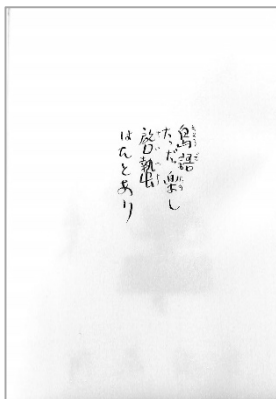 鳥語
たゞ楽し
啓蟄
はたとあり